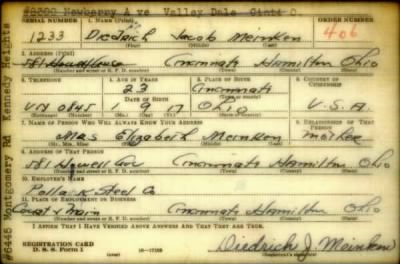 Newberry Ave Valley Dale
SERIAL NUMBER 1. NAME (Print) ORDER NUMBER
1233 Diedrich Jacob Meinken 406
(First) (Middle) (Last)
2. ADDRESS (Print)
581 Howell Ave Cincinnati Hamilton Ohio
3. TELEPHONE 4. AGE IN YEARS 5. PLACE OF BIRTH 6. COUNTRY OF CITIZENSHIP
23 Cincinnati
DATE OF BIRTH
UN 0845 1 9 17 Ohio U.S.A.
7. NAME OF PERSON WHO WILL ALWAYS KNOW YOUR ADDRESS 8. RELATIONSHIP OF THAT PERSON
Mrs Elizabeth Meinken mother
(Mr., Mrs., Miss) (First) (Middle) (Last)
9. ADDRESS OF THAT PERSON
581 Howell Ave Cincinnati Hamilton Ohio
10. EMPLOYER'S NAME
Pollak Steel Co
11. PLACE OF EMPLOYMENT OR BUSINESS
Court & Main Cincinnati Hamilton Ohio
I AFFIRM THAT I HAVE VERIFIED ABOVE ANSWERS AND THAT THEY ARE TRUE.
REGISTRATION CARD
D. S. S. Form 1 Diedrich J. Meinken
#6445 Montgomery Rd Kennedy Heights